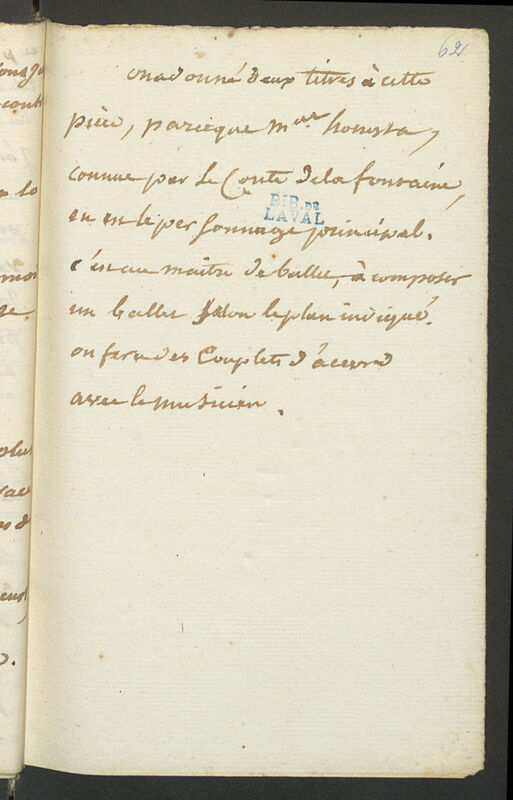 62
on a donné deux titres à cette
pièce, parceque Mme honesta,
connue par le Conte de la fontaine,
en est le personnage principal.
BIB. DE
LAVAL
c'est au maître de ballet, à composer
un ballet selon le plan indiqué.
on fera des Couplets d'accord
avec le musicien.